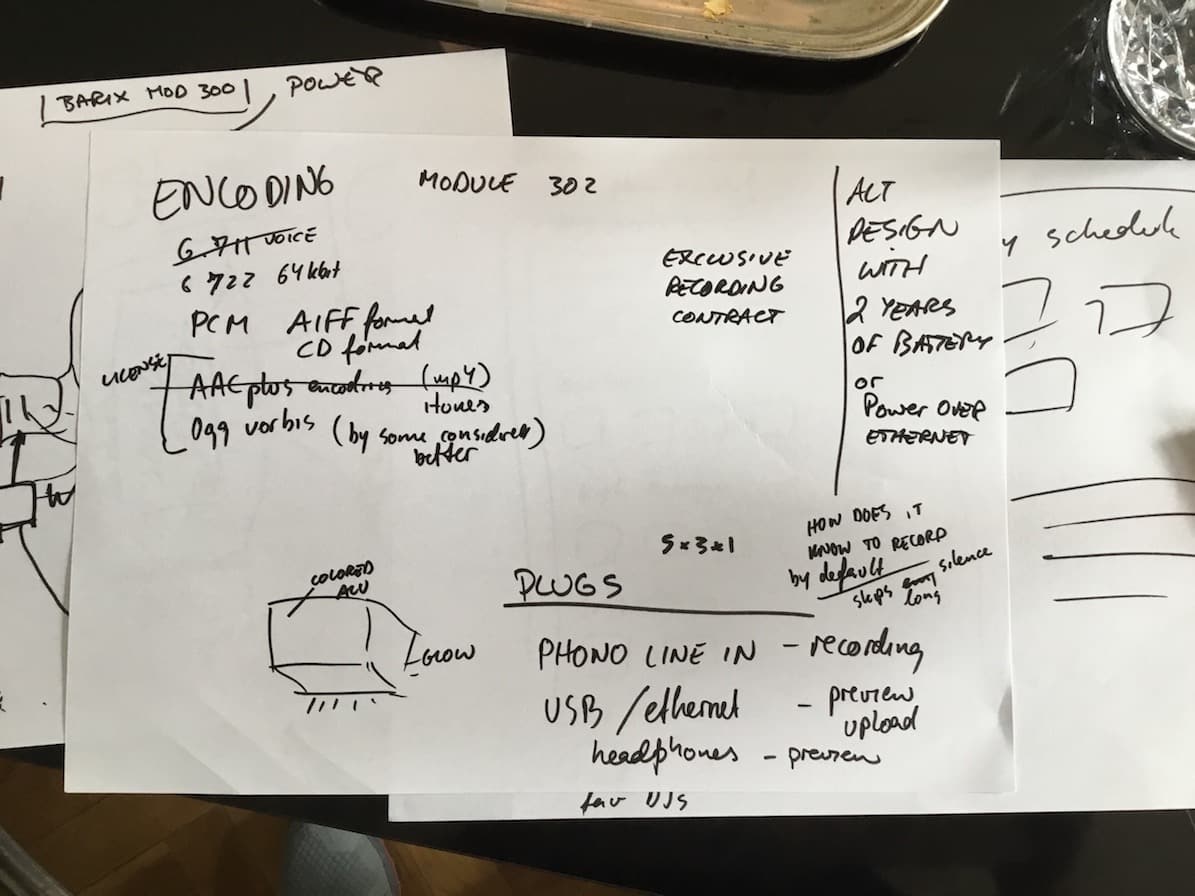 BARIX MOD 300
POWER
ENCODING
MODULE 302
G.711 VOICE
G 722 64kbit
PCM AIFF format
CD format
LICENSE
AAC plus encoding (mp4)
itunes
Ogg vorbis (by some considered
better
EXCLUSIVE
RECORDING
CONTRACT
ALT
DESIGN
WITH
2 YEARS
OF BATTERY
or
Power OVER
ETHERNET
y schedule
5x3x1
HOW DOES IT
KNOW TO RECORD
by default
skips long silence
COLORED
ALU
GLOW
PLUGS
PHONO LINE IN - recording
USB / ethernet - preview
upload
headphones - preview
fav DJs